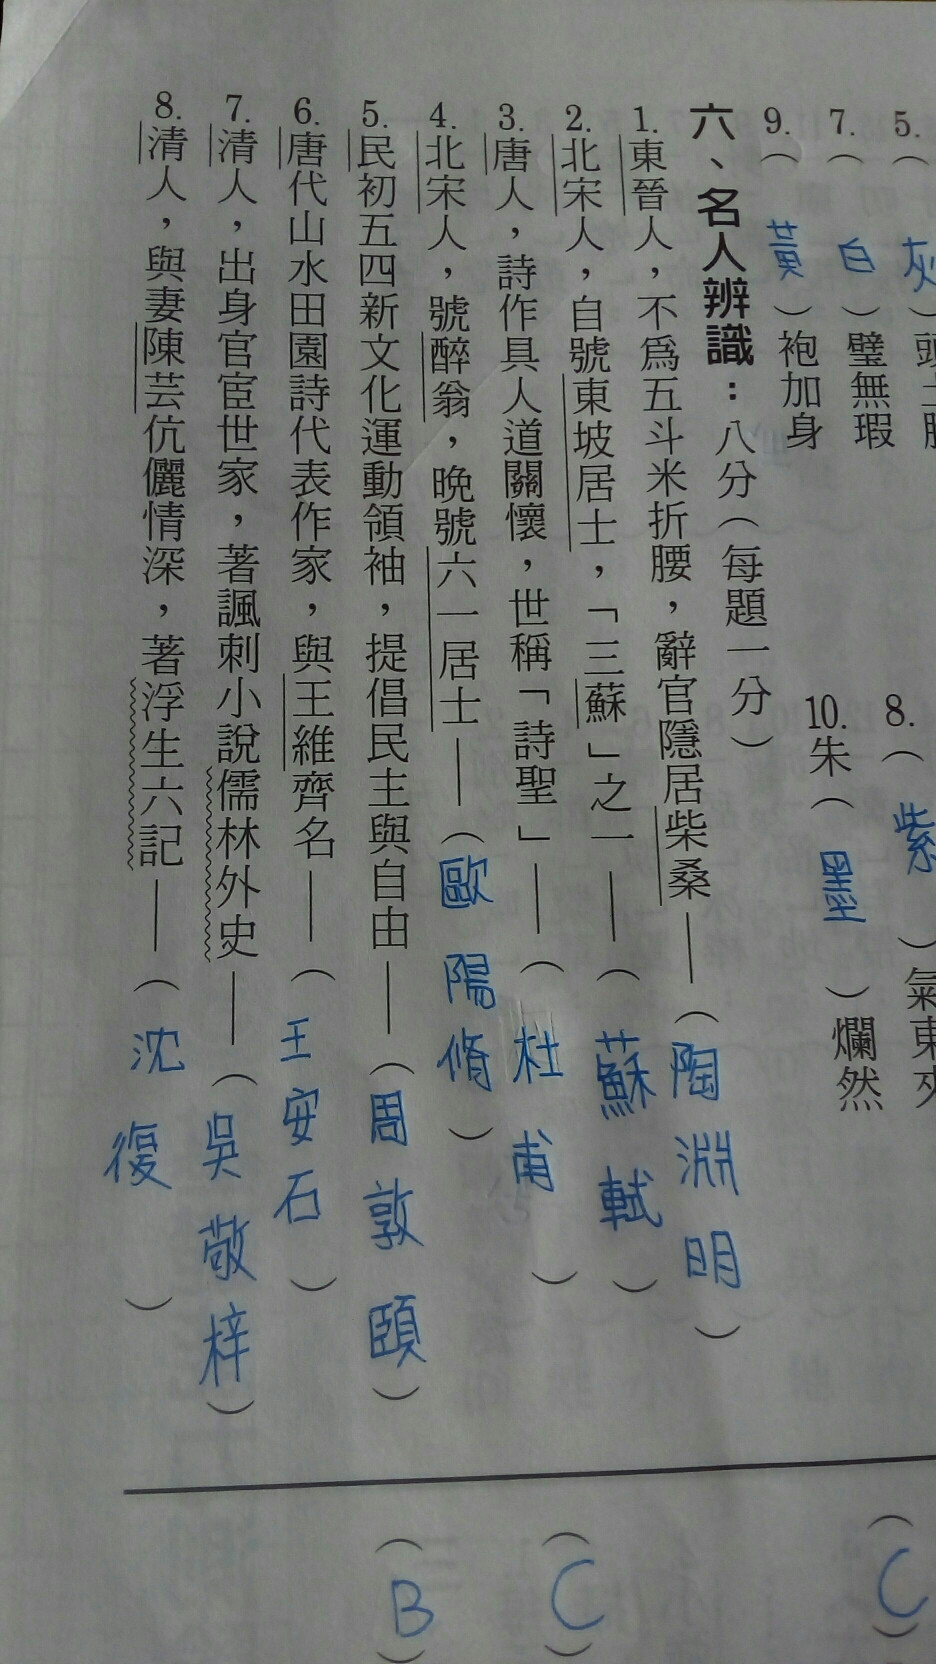 5.（灰）頭土臉
7.（白）璧無瑕
8.（紫）氣東來
9.（黃）袍加身
10.朱（墨）爛然
六、名人辨識：八分（每題一分）
1.東晉人，不為五斗米折腰，辭官隱居柴桑——（陶淵明）
2.北宋人，自號東坡居士，「三蘇」之一——（蘇軾）
3.唐人，詩作具人道關懷，世稱「詩聖」——（杜甫）
4.北宋人，號醉翁，晚號六一居士——（歐陽脩）
5.民初五四新文化運動領袖，提倡民主與自由——（周敦頤）
6.唐代山水田園詩代表作家，與王維齊名——（王安石）
7.清人，出身官宦世家，著諷刺小說儒林外史——（吳敬梓）
8.清人，與妻陳芸伉儷情深，著浮生六記——（沈復）
（C）
（C）
（B）